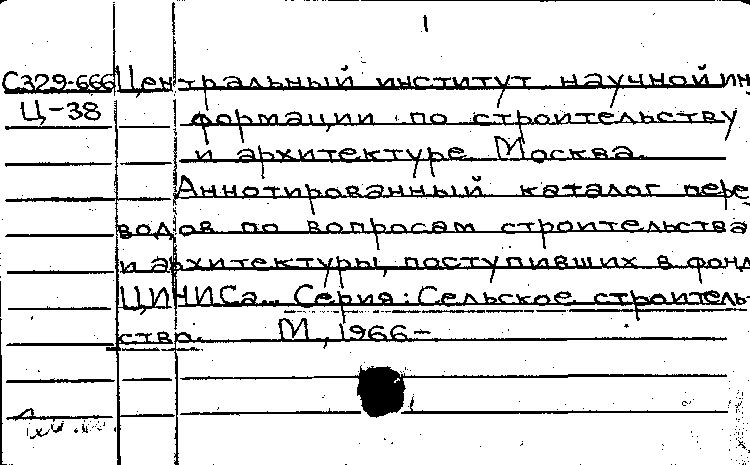 1
С329-666 Центральный институт научной ин
Ц-38 формации по строительству
и архитектуре. Москва.
Аннотированный каталог пере
водов по вопросам строительства
и архитектуры, поступивших в фонд
ЦИНИСа... Серия: Сельское строитель
ство. М., 1966-